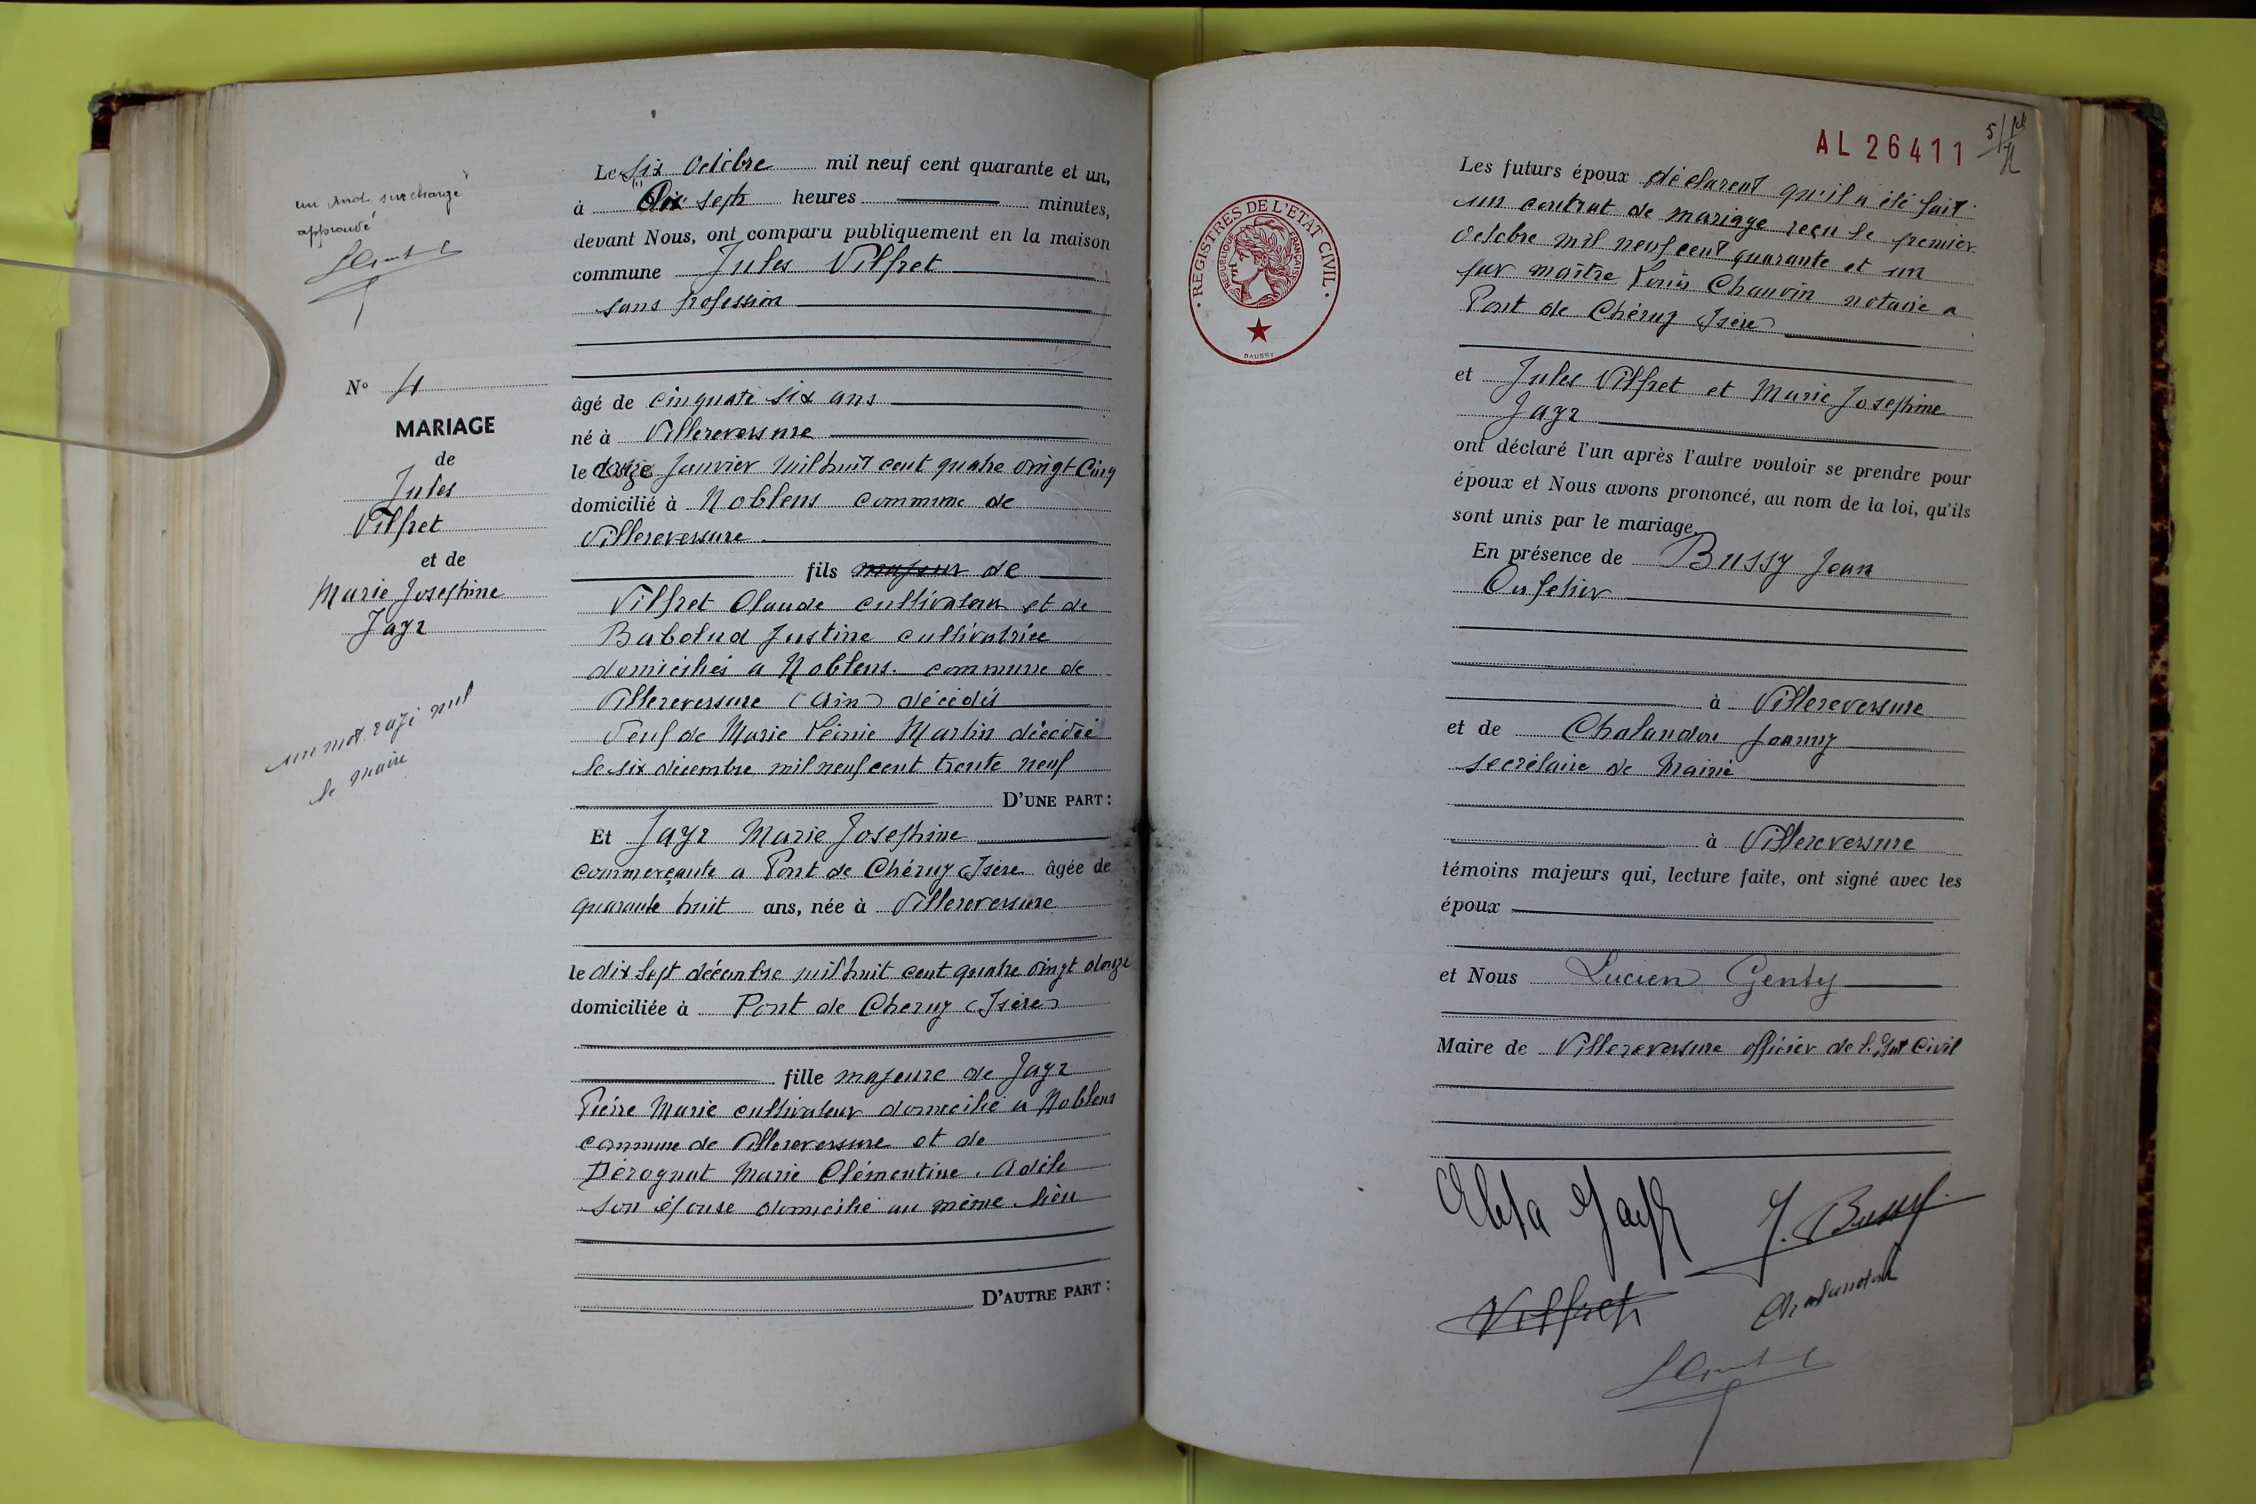 un mot surchargé
approuvé
N° 4
MARIAGE
de
Jules
Vilfret
et de
Marie Josephine
Jayr
un mot rayé nul
le maire
Le six Octobre mil neuf cent quarante et un,
à Dix sept heures minutes,
devant Nous, ont comparu publiquement en la maison
commune Jules Vilfret
sans profession
âgé de cinquate six ans
né à Villereversure
le Janvier mil huit cent quatre vingt Cinq
domicilié à Noblens commune de
Villereversure
fils majeur de
Vilfret Claude cultivateur et de
Babolud Justine cultivatrice
domiciliés a Noblens. commune de
Villereversure (Ain) décédés
Veuf de Marie Léonie Martin décédée
le six décembre mil neuf cent trente neuf
D'UNE PART :
Et Jayr Marie Josephine
commerçante a Pont de Chéruy Isère âgée de
quarante huit ans, née à Villereversure
le dix sept décembre mil huit cent quatre vingt douze
domiciliée à Pont de Cheruy (Isère)
fille majeure de Jayr
Pierre Marie cultivateur domicilié a Noblens
commune de Villereversure et de
Dérognat Marie Clémentine. Adèle
son épouse domicilié au même lieu
D'AUTRE PART :
AL 26411
REGISTRES DE L'ETAT CIVIL
REPUBLIQUE FRANÇAISE
DAUSSY
Les futurs époux déclarent qu'il a été fait
un contrat de mariage reçu le premier
Octobre mil neuf cent quarante et un
par maître Louis Chauvin notaire a
Pont de Chéruy Isère
et Jules Vilfret et Marie Josephine
Jayr
ont déclaré l'un après l'autre vouloir se prendre pour
époux et Nous avons prononcé, au nom de la loi, qu'ils
sont unis par le mariage.
En présence de Bussy Jean
à Villereversure
et de Chalandon Joanny
secrétaire de Mairie
à Villereversure
témoins majeurs qui, lecture faite, ont signé avec les
époux
et Nous Lucien Genty
Maire de Villereversure officier de l'Etat Civil
Jayr
J. Bussy
Vilfret
Chalandon